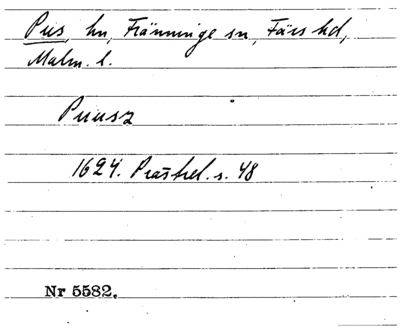 Pus, hn, Fränninge sn, Färs hd,
Malm. l.
Puusz
1624. Prästrel. s. 48
Nr 5582.